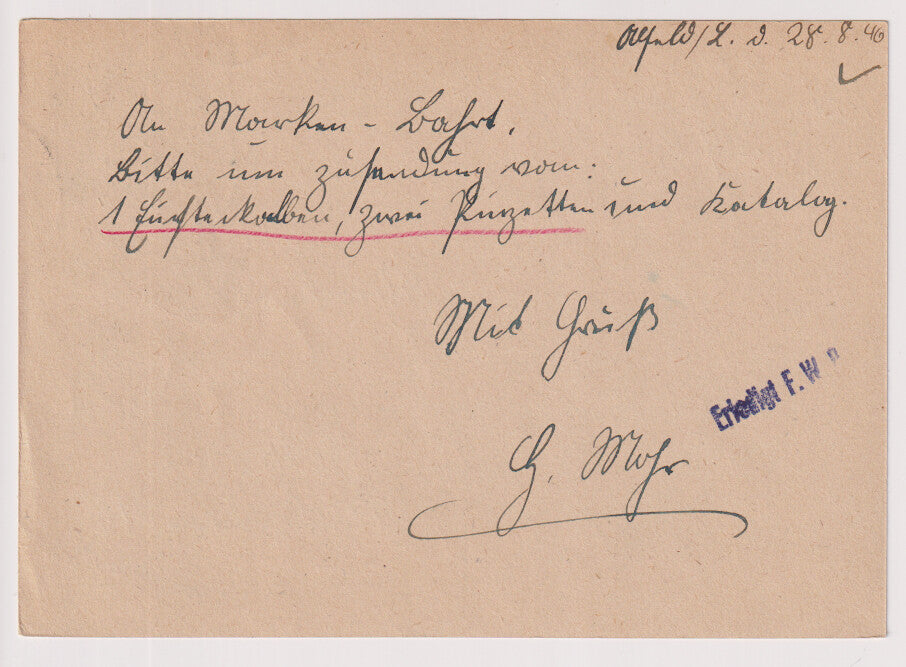 Alfeld/L. d. 28.8.46
An Marken-Bahrt.
Bitte um Zusendung vom:
1 Einsteckalben, zwei Pinzetten und Katalog.
Mit Gruß
Erledigt F. W.
H. Mohr